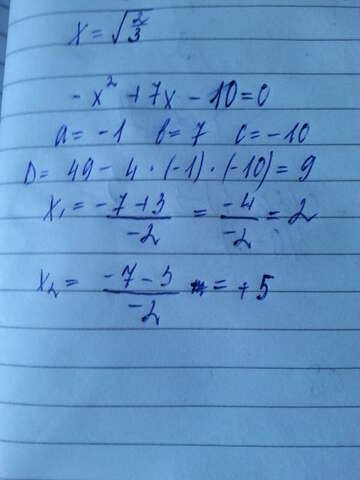 x = √2/3
- x² + 7x - 10 = 0
a = -1 b = 7 c = -10
D = 49 - 4 · (-1) · (-10) = 9
x₁ = -7+3/-2 = -4/-2 = 2
x₂ = -7-3/-2 = +5